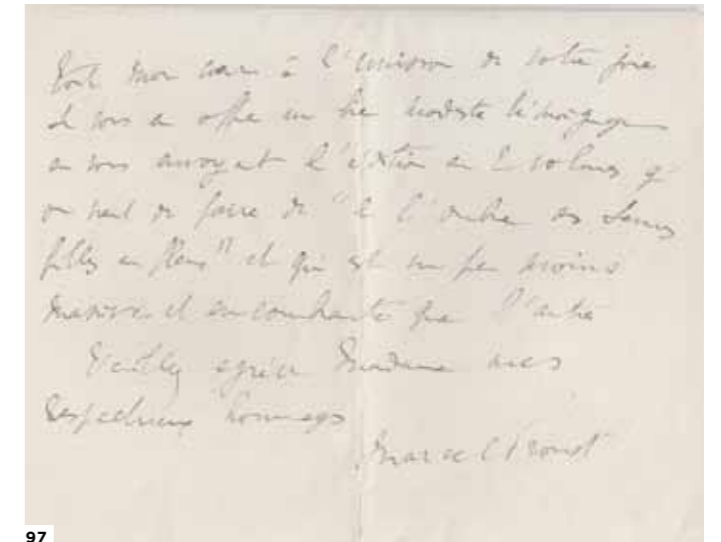 tout mon cœur à l'unisson de votre joie
et vous en offre un très modeste témoignage
en vous envoyant l'édition en 2 volumes qu'
on vient de faire de "à l'ombre des Jeunes
filles en fleurs" et qui est un peu moins
massive et encombrante que l'autre
Veuillez agréer Madame mes
respectueux hommages
Marcel Proust
97